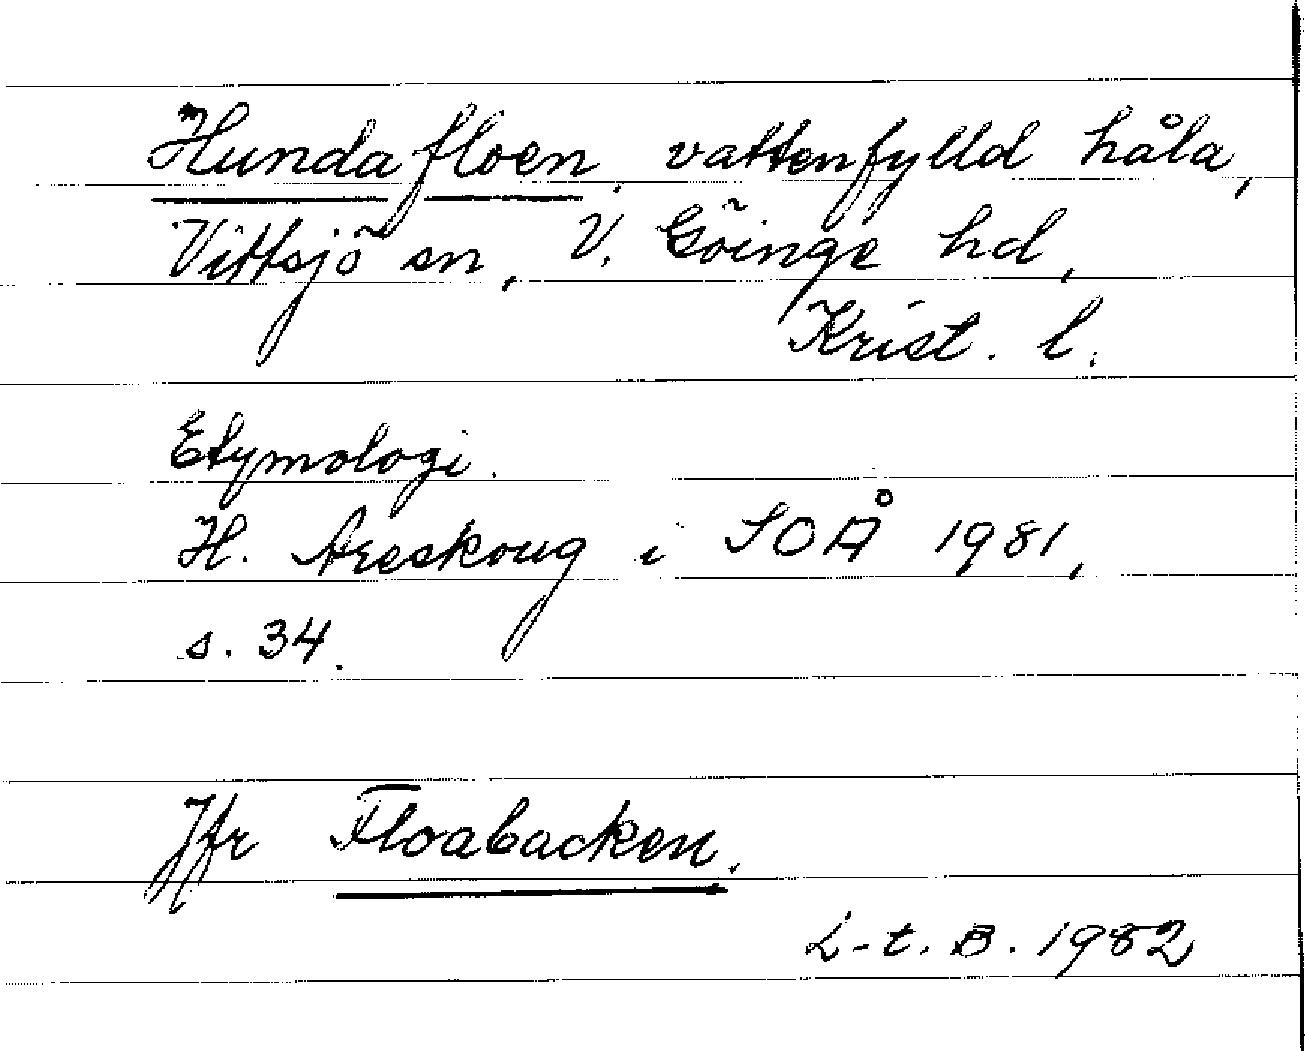 Hundafloen, vattenfylld håla,
Vittsjö sn, V. Göinge hd,
Krist. l.
Etymologi.
H. Areskoug i SOÅ 1981,
s. 34.
Jfr Floabacken.
L-t. B. 1982